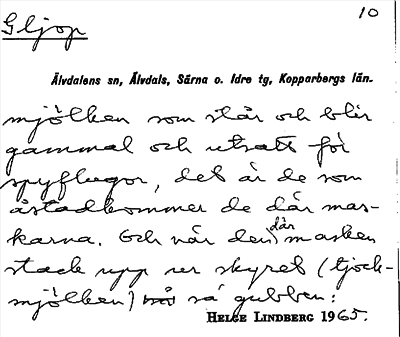 Gljop
10
Älvdalens sn, Älvdals, Särna o. Idre tg, Kopparbergs län.
mjölken som står och blir
gammal och utsatt för
spyflugor, det är de som
åstadkommer de där mas-
karna. Och när den där masken
stack upp ur skyret (tjock-
mjölken) så gubben:
HELGE LINDBERG 1965.